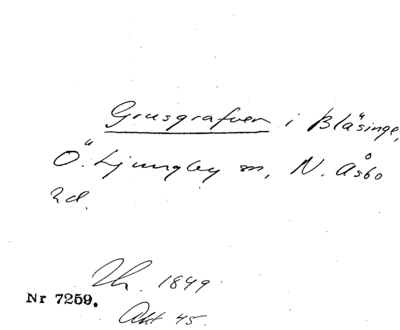 Grusgrafven i Bläsinge,
Ö. Ljungby sn, N. Åsbo
hd.
Th. 1849
Nr 7259.
Akt 45.